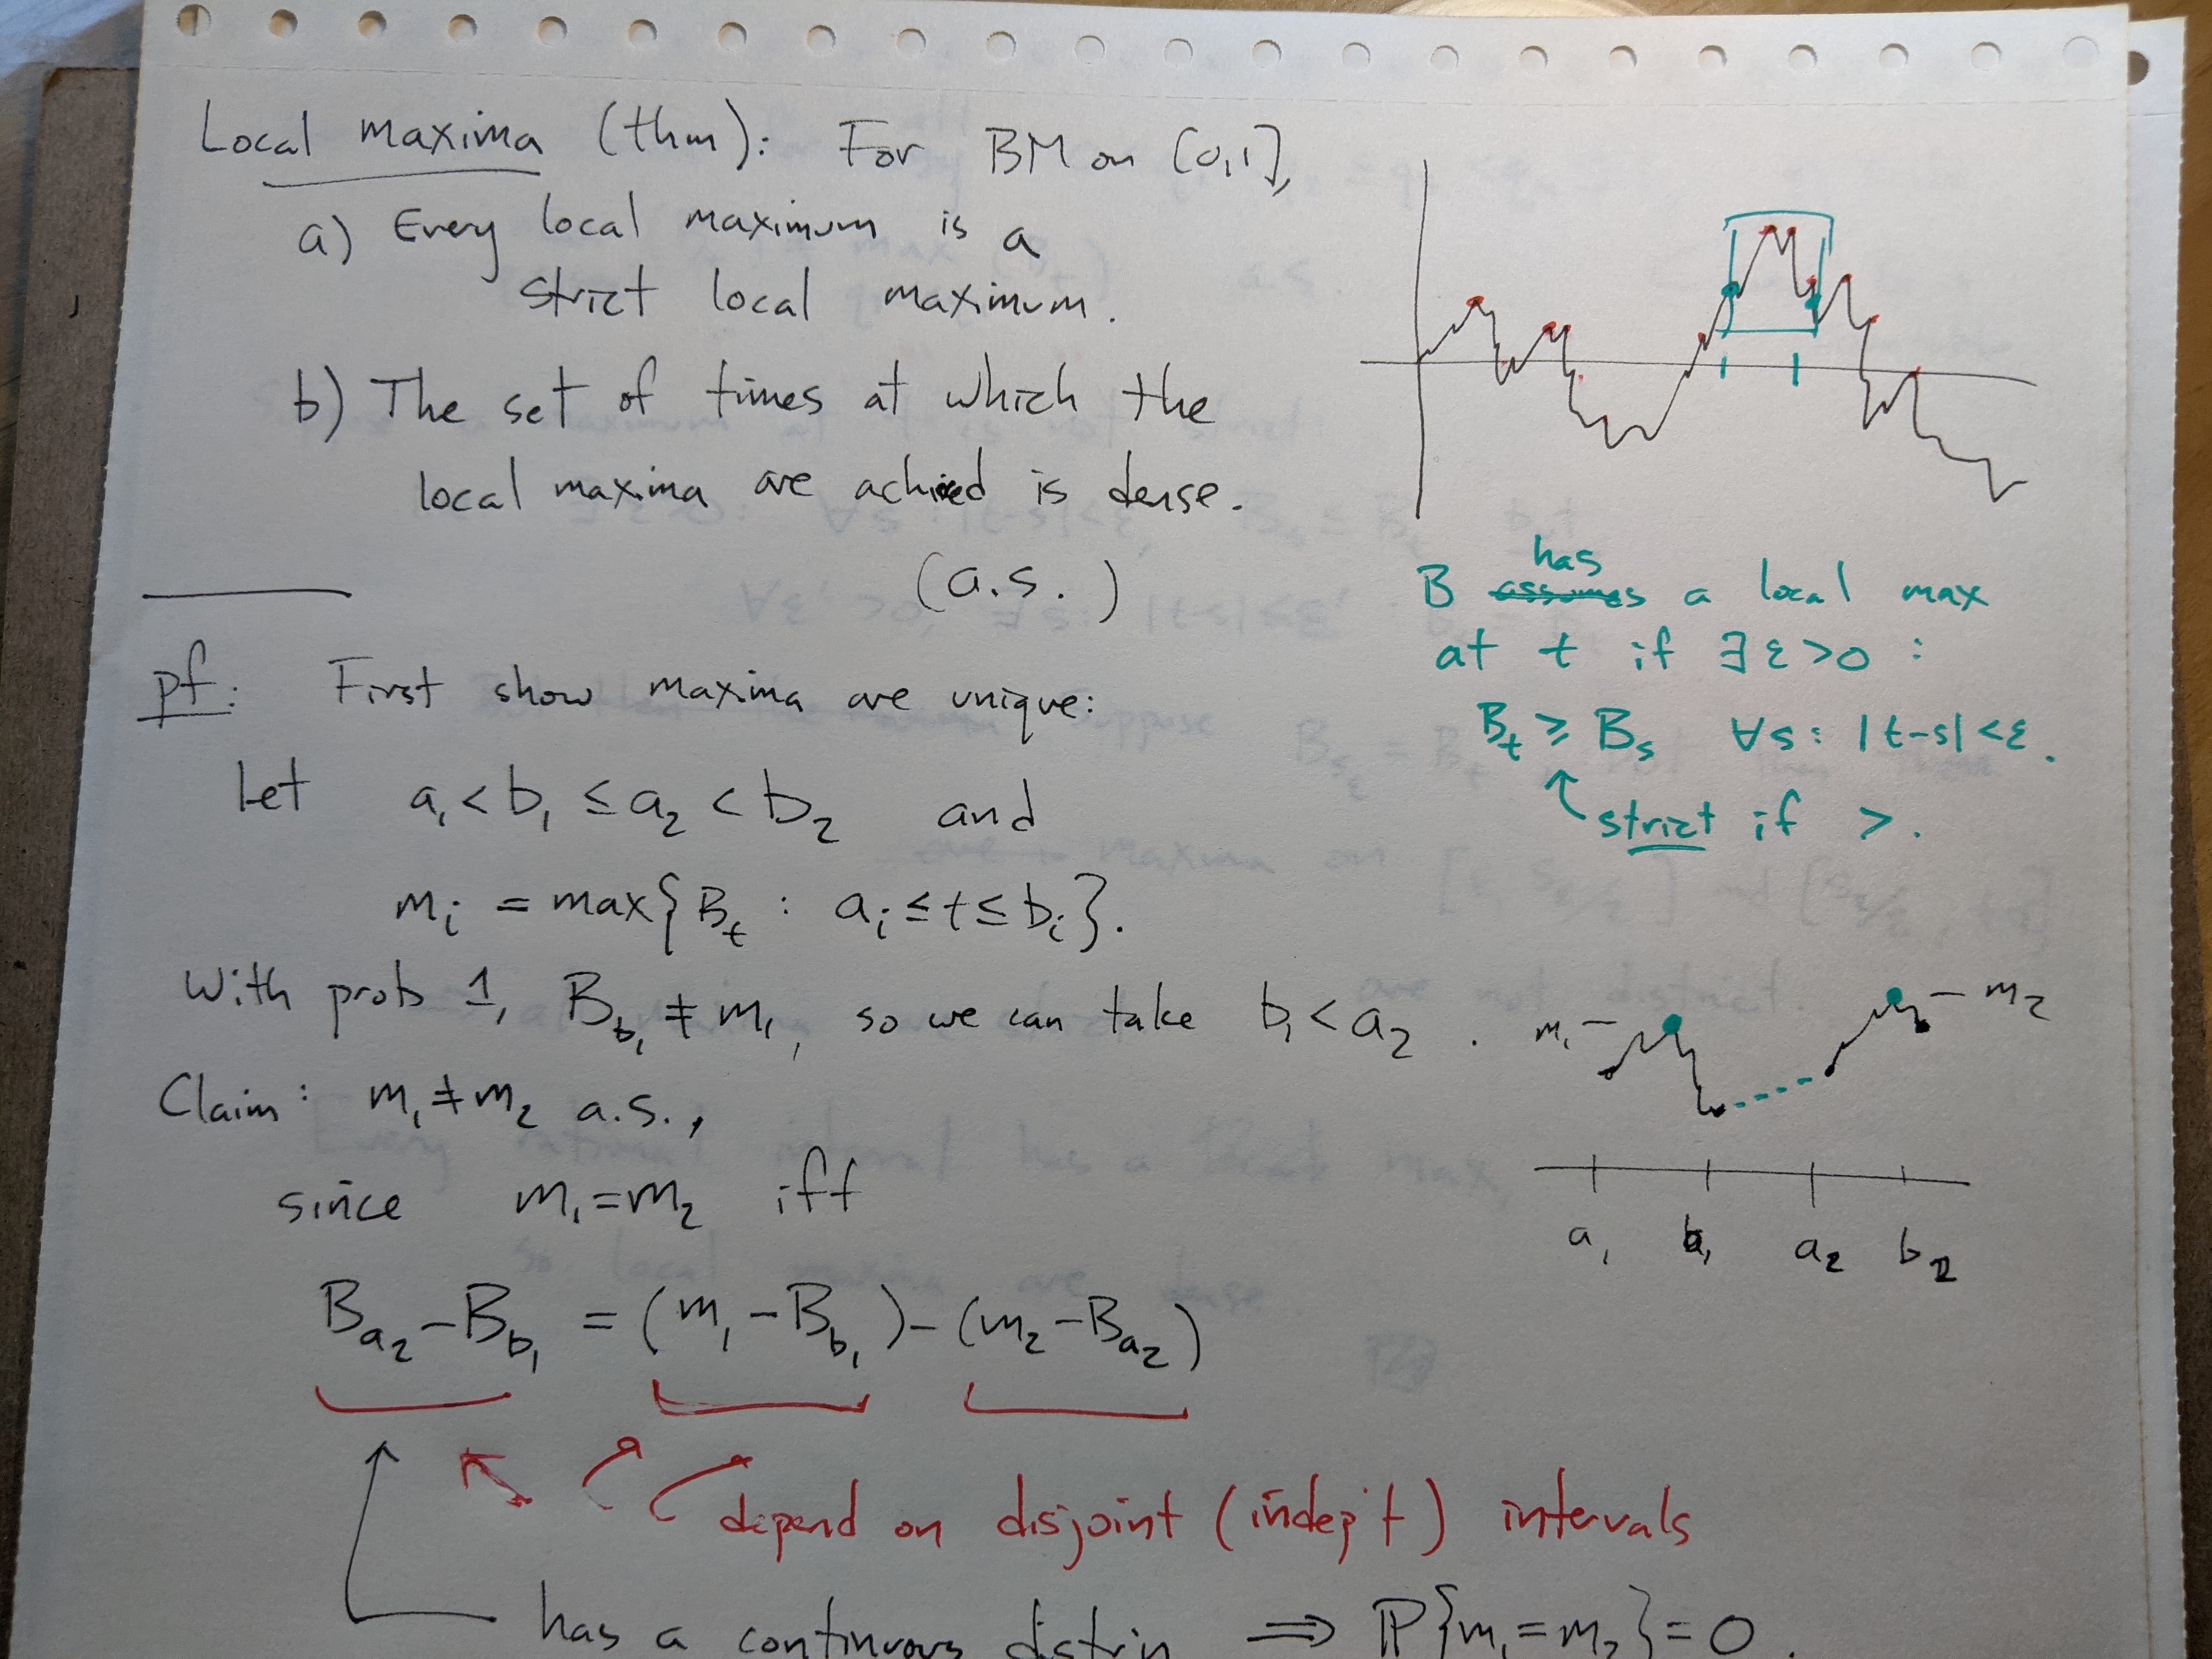 Local maxima (thm): For BM on [0,1],
a) Every local maximum is a
strict local maximum.
b) The set of times at which the
local maxima are achieved is dense.
(a.s.)
B has a local max
at t if ∃ε>0 :
B_t ≥ B_s ∀s: |t-s|<ε.
strict if >.
pf: First show maxima are unique:
Let a_1 < b_1 ≤ a_2 < b_2 and
m_i = max{B_t : a_i ≤ t ≤ b_i}.
With prob 1, B_{b_1} ≠ m_1, so we can take b_1 < a_2.
m_1 – – m_2
a_1 b_1 a_2 b_2
Claim: m_1 ≠ m_2 a.s.,
since m_1 = m_2 iff
B_{a_2} - B_{b_1} = (m_1 - B_{b_1}) - (m_2 - B_{a_2})
depend on disjoint (indep't) intervals
has a continuous distrin ⇒ ℙ{m_1 = m_2} = 0.